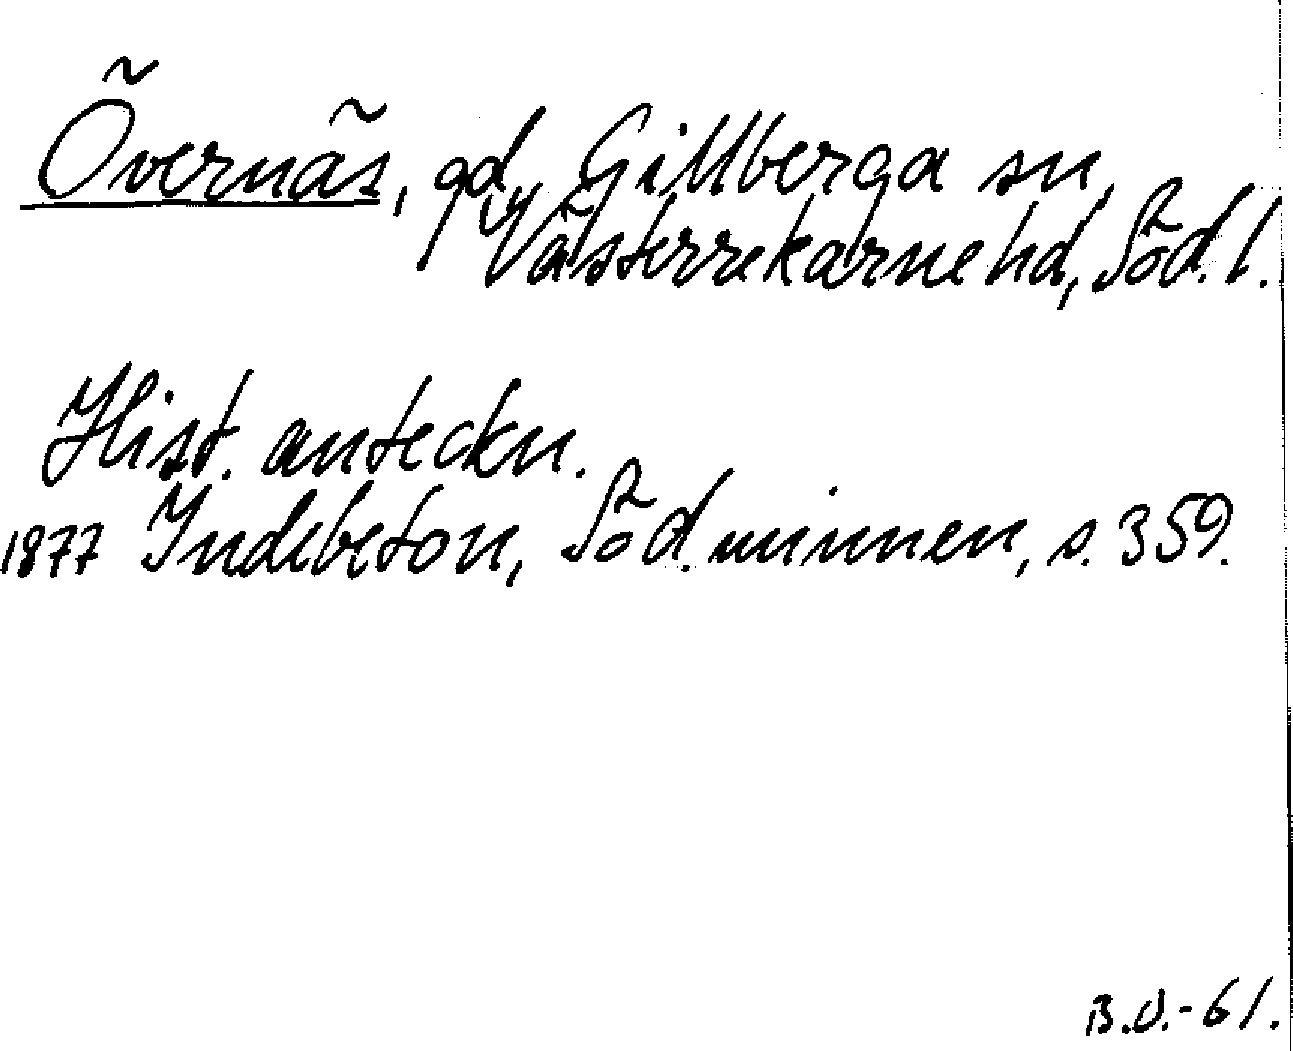 Övernäs, gd, Gillberga sn,
Västerrekarne hd, Söd. l.
Hist. anteckn.
1877 Indebetou, Söd. minnen, s. 359.
B.O.-61.